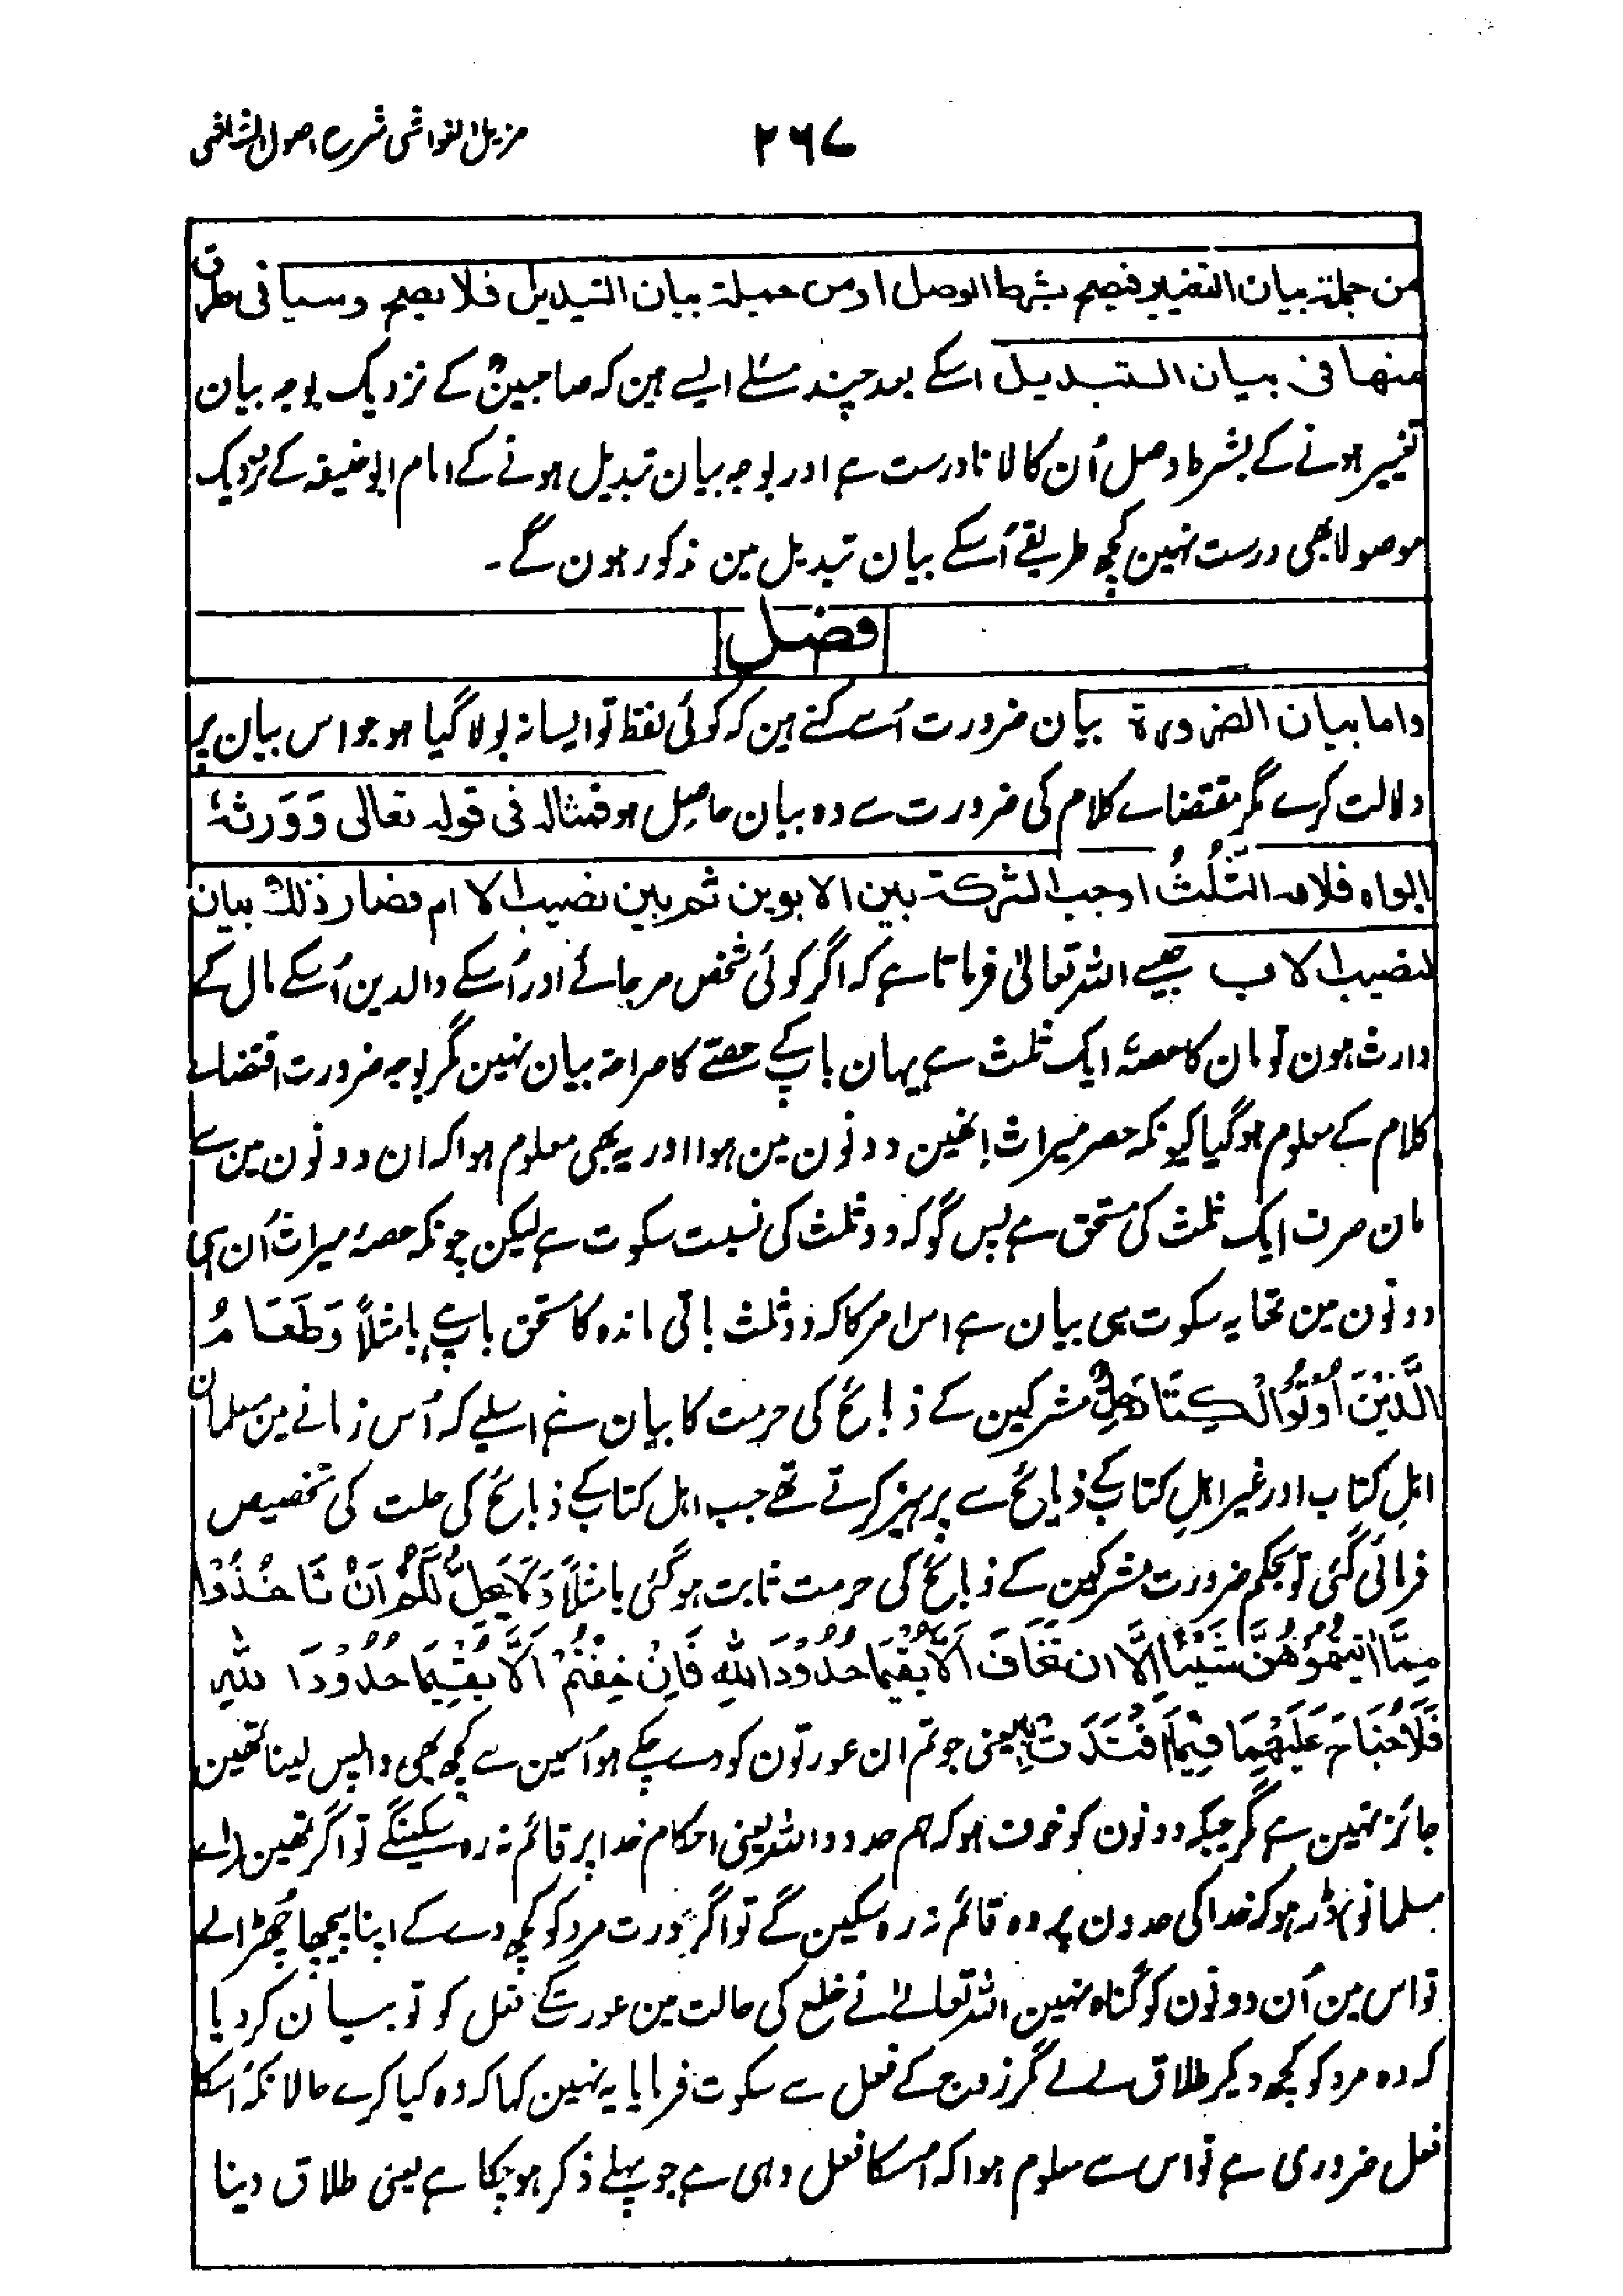 مزیل الغواشی شرح اصول الشاشی
۲۶۷
من جملة بيان التغيير فيصح بشرط الوصل او من جملة بيان التبديل فلا يصح وسياتی طرق
منها فی بيان التبديل اسکے بعد چند مسئلے ایسے ہین کہ صاحبینؒ کے نزدیک بوجہ بیان
تغییر ہونے کے بشرط وصل اُن کا لانا درست ہے اور بوجہ بیان تبدیل ہونے کے امام ابوحنیفہ کے نزدیک
موصولا بھی درست نہین کچھ طریقے اُسکے بیان تبدیل مین مذکور ہون گے۔
فصل
واما بيان الضرورة بیان ضرورت اُسے کہتے ہین کہ کوئی لفظ تو ایسا نہ بولا گیا ہو جو اس بیان پر
دلالت کرے مگر مقتضاے کلام کی ضرورت سے وہ بیان حاصل ہو فمثاله فی قوله تعالی وَوَرِثَهٗ
ابواه فلامه الثُّلُثُ اوجب الشركة بين الابوين ثم بين نصيب الام فصار ذلك بيان
لنصيب الاب جیسے اللہ تعالیٰ فرماتا ہے کہ اگر کوئی شخص مرجائے اور اُسکے والدین اُسکے مال کے
وارث ہون تو مان کا حصہ ایک ثلث ہے یہان باپ کے حصے کا صراحۃً بیان نہین مگر بوجہ ضرورت اقتضاے
کلام کے معلوم ہوگیا کیونکہ حصر میراث انھین دونون مین ہوا اور یہ بھی معلوم ہوا کہ ان دونون مین سے
مان صرف ایک ثلث کی مستحق ہے پس گو کہ دو ثلث کی نسبت سکوت ہے لیکن چونکہ حصۂ میراث اُن ہی
دونون مین تھا یہ سکوت ہی بیان ہے اس امر کا کہ دو ثلث باقی ماندہ کا مستحق باپ ہے یا مثلاً وَطَعَامُ
الَّذِيْنَ اُوْتُوا الْكِتَابَ حِلٌّ مشرکین کے ذبائح کی حرمت کا بیان ہے اسلیے کہ اُس زمانے مین مسلمان
اہل کتاب اور غیر اہل کتاب کے ذبائح سے پرہیز کرتے تھے جب اہل کتاب کے ذبائح کی حلت کی تخصیص
فرمائی گئی تو بحکم ضرورت مشرکین کے ذبائح کی حرمت ثابت ہوگئی یا مثلاً وَلَا يَحِلُّ لَكُمْ اَنْ تَاخُذُوْا
مِمَّا اٰتَيْتُمُوْهُنَّ شَيْئًا اِلَّا ان يَّخَافَ اَلَّا يُقِيْمَا حُدُوْدَ اللهِ فَاِنْ خِفْتُمْ اَلَّا يُقِيْمَا حُدُوْدَا للهِ
فَلَا جُنَاحَ عَلَيْهِمَا فِيْمَا افْتَدَتْ بِهٖ یعنی جو تم ان عورتون کو دے چکے ہو اُسمین سے کچھ بھی واپس لینا تمھین
جائز نہین ہے مگر جبکہ دونون کو خوف ہو کہ ہم حدود اللہ یعنی احکام خدا پر قائم نہ رہ سکینگے تو اگر تمھین (اے
مسلمانو) ڈر ہو کہ خدا کی حدون پر وہ قائم نہ رہ سکین گے تو اگر عورت مرد کو کچھ دے کے اپنا پیچھا چھڑالے
تو اس مین اُن دونون کو گناہ نہین اللہ تعالےٰ نے خلع کی حالت مین عورت کے فعل کو تو بیان کردیا
کہ وہ مرد کو کچھ دیکر طلاق لے لے مگر زوج کے فعل سے سکوت فرمایا یہ نہین کہا کہ وہ کیا کرے حالانکہ اُسکا
فعل ضروری ہے تو اس سے معلوم ہوا کہ اُسکا فعل وہی ہے جو پہلے ذکر ہوچکا ہے یعنی طلاق دینا